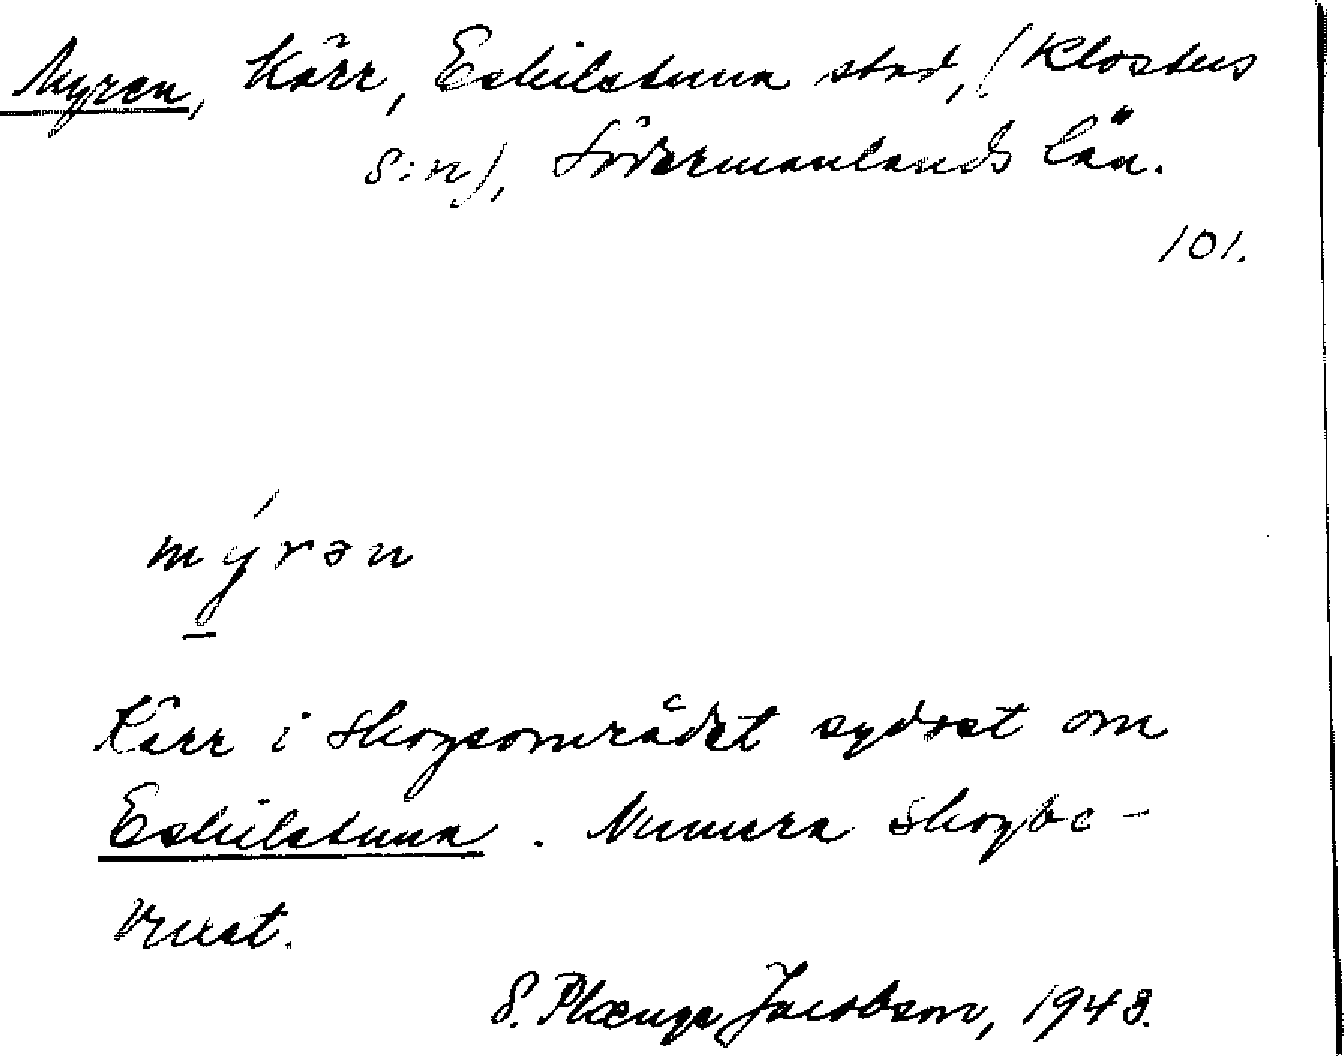 Myren, Kärr, Eskilstuna stad, (Klosters
s:n), Södermanlands län.
101.
mýrən
Kärr i skogsområdet sydost om
Eskilstuna. Numera skogbe-
vuxet.
S. Plænge Jacobson, 1943.